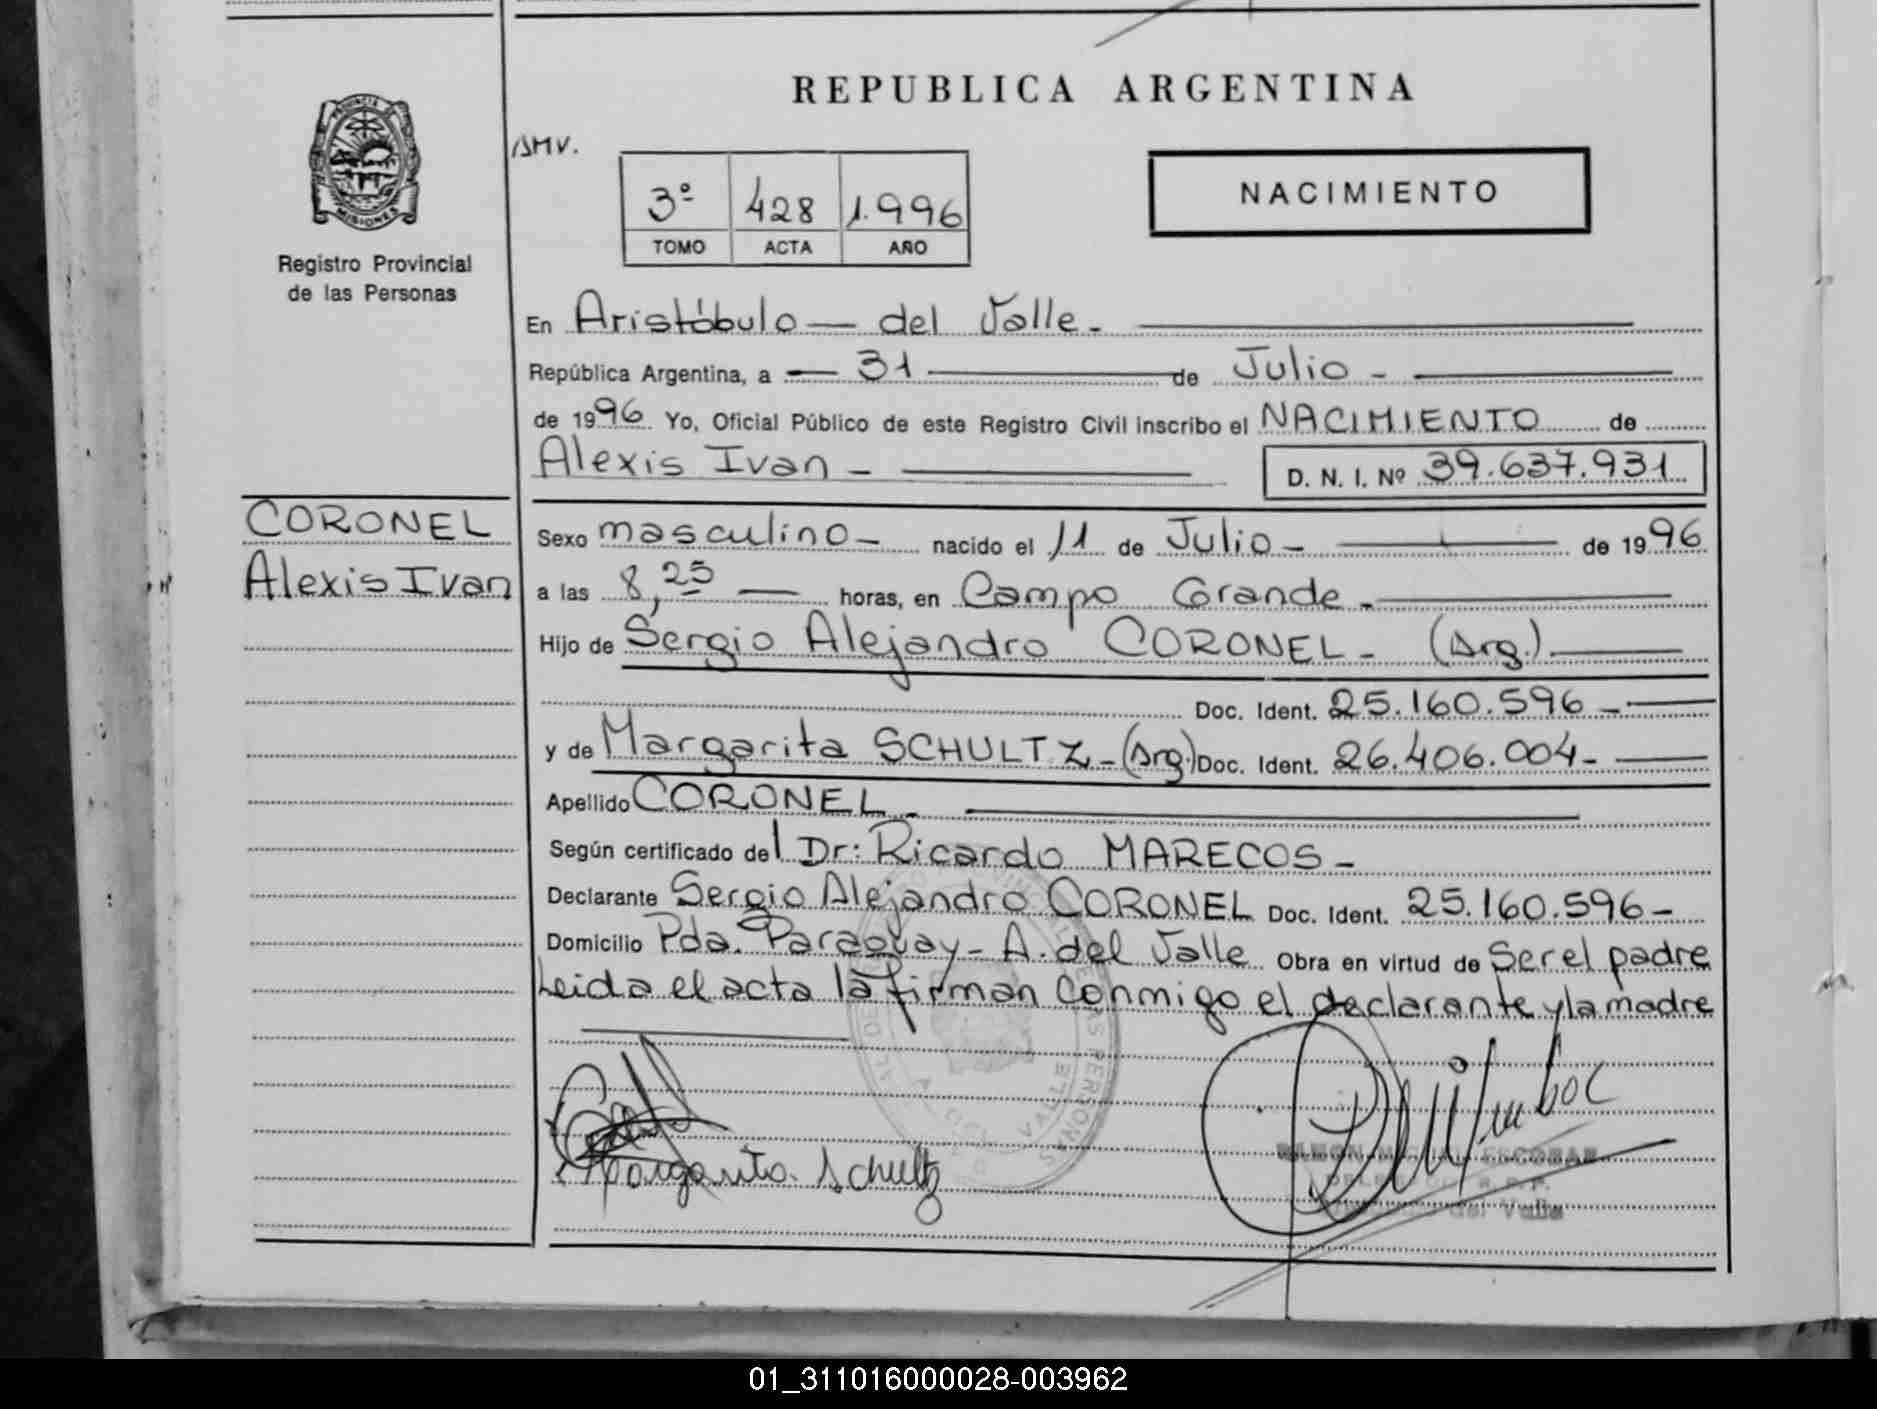 REPUBLICA ARGENTINA
PROVINCIA DE
MISIONES
Registro Provincial
de las Personas
AMV.
3º 428 1.996
TOMO ACTA AÑO
NACIMIENTO
En Aristóbulo — del Valle.-
República Argentina, a — 31 — de Julio -
de 1996 Yo, Oficial Público de este Registro Civil inscribo el NACIMIENTO de
Alexis Ivan - D. N. I. Nº 39.637.931
CORONEL
Alexis Ivan
Sexo masculino - nacido el 11 de Julio - de 1996
a las 8,25 — horas, en Campo Grande.-
Hijo de Sergio Alejandro CORONEL - (Arg.)
Doc. Ident. 25.160.596 -
y de Margarita SCHULTZ - (Arg.) Doc. Ident. 26.406.004 -
Apellido CORONEL.-
Según certificado del Dr: Ricardo MARECOS -
Declarante Sergio Alejandro CORONEL Doc. Ident. 25.160.596 -
Domicilio Pda. Paraguay - A. del Valle Obra en virtud de Ser el padre
Leida el acta la firman Conmigo el declarante y la madre
Margarita Schultz
A. DEL VALLE
ESCOBAR
del Valle
01_311016000028-003962